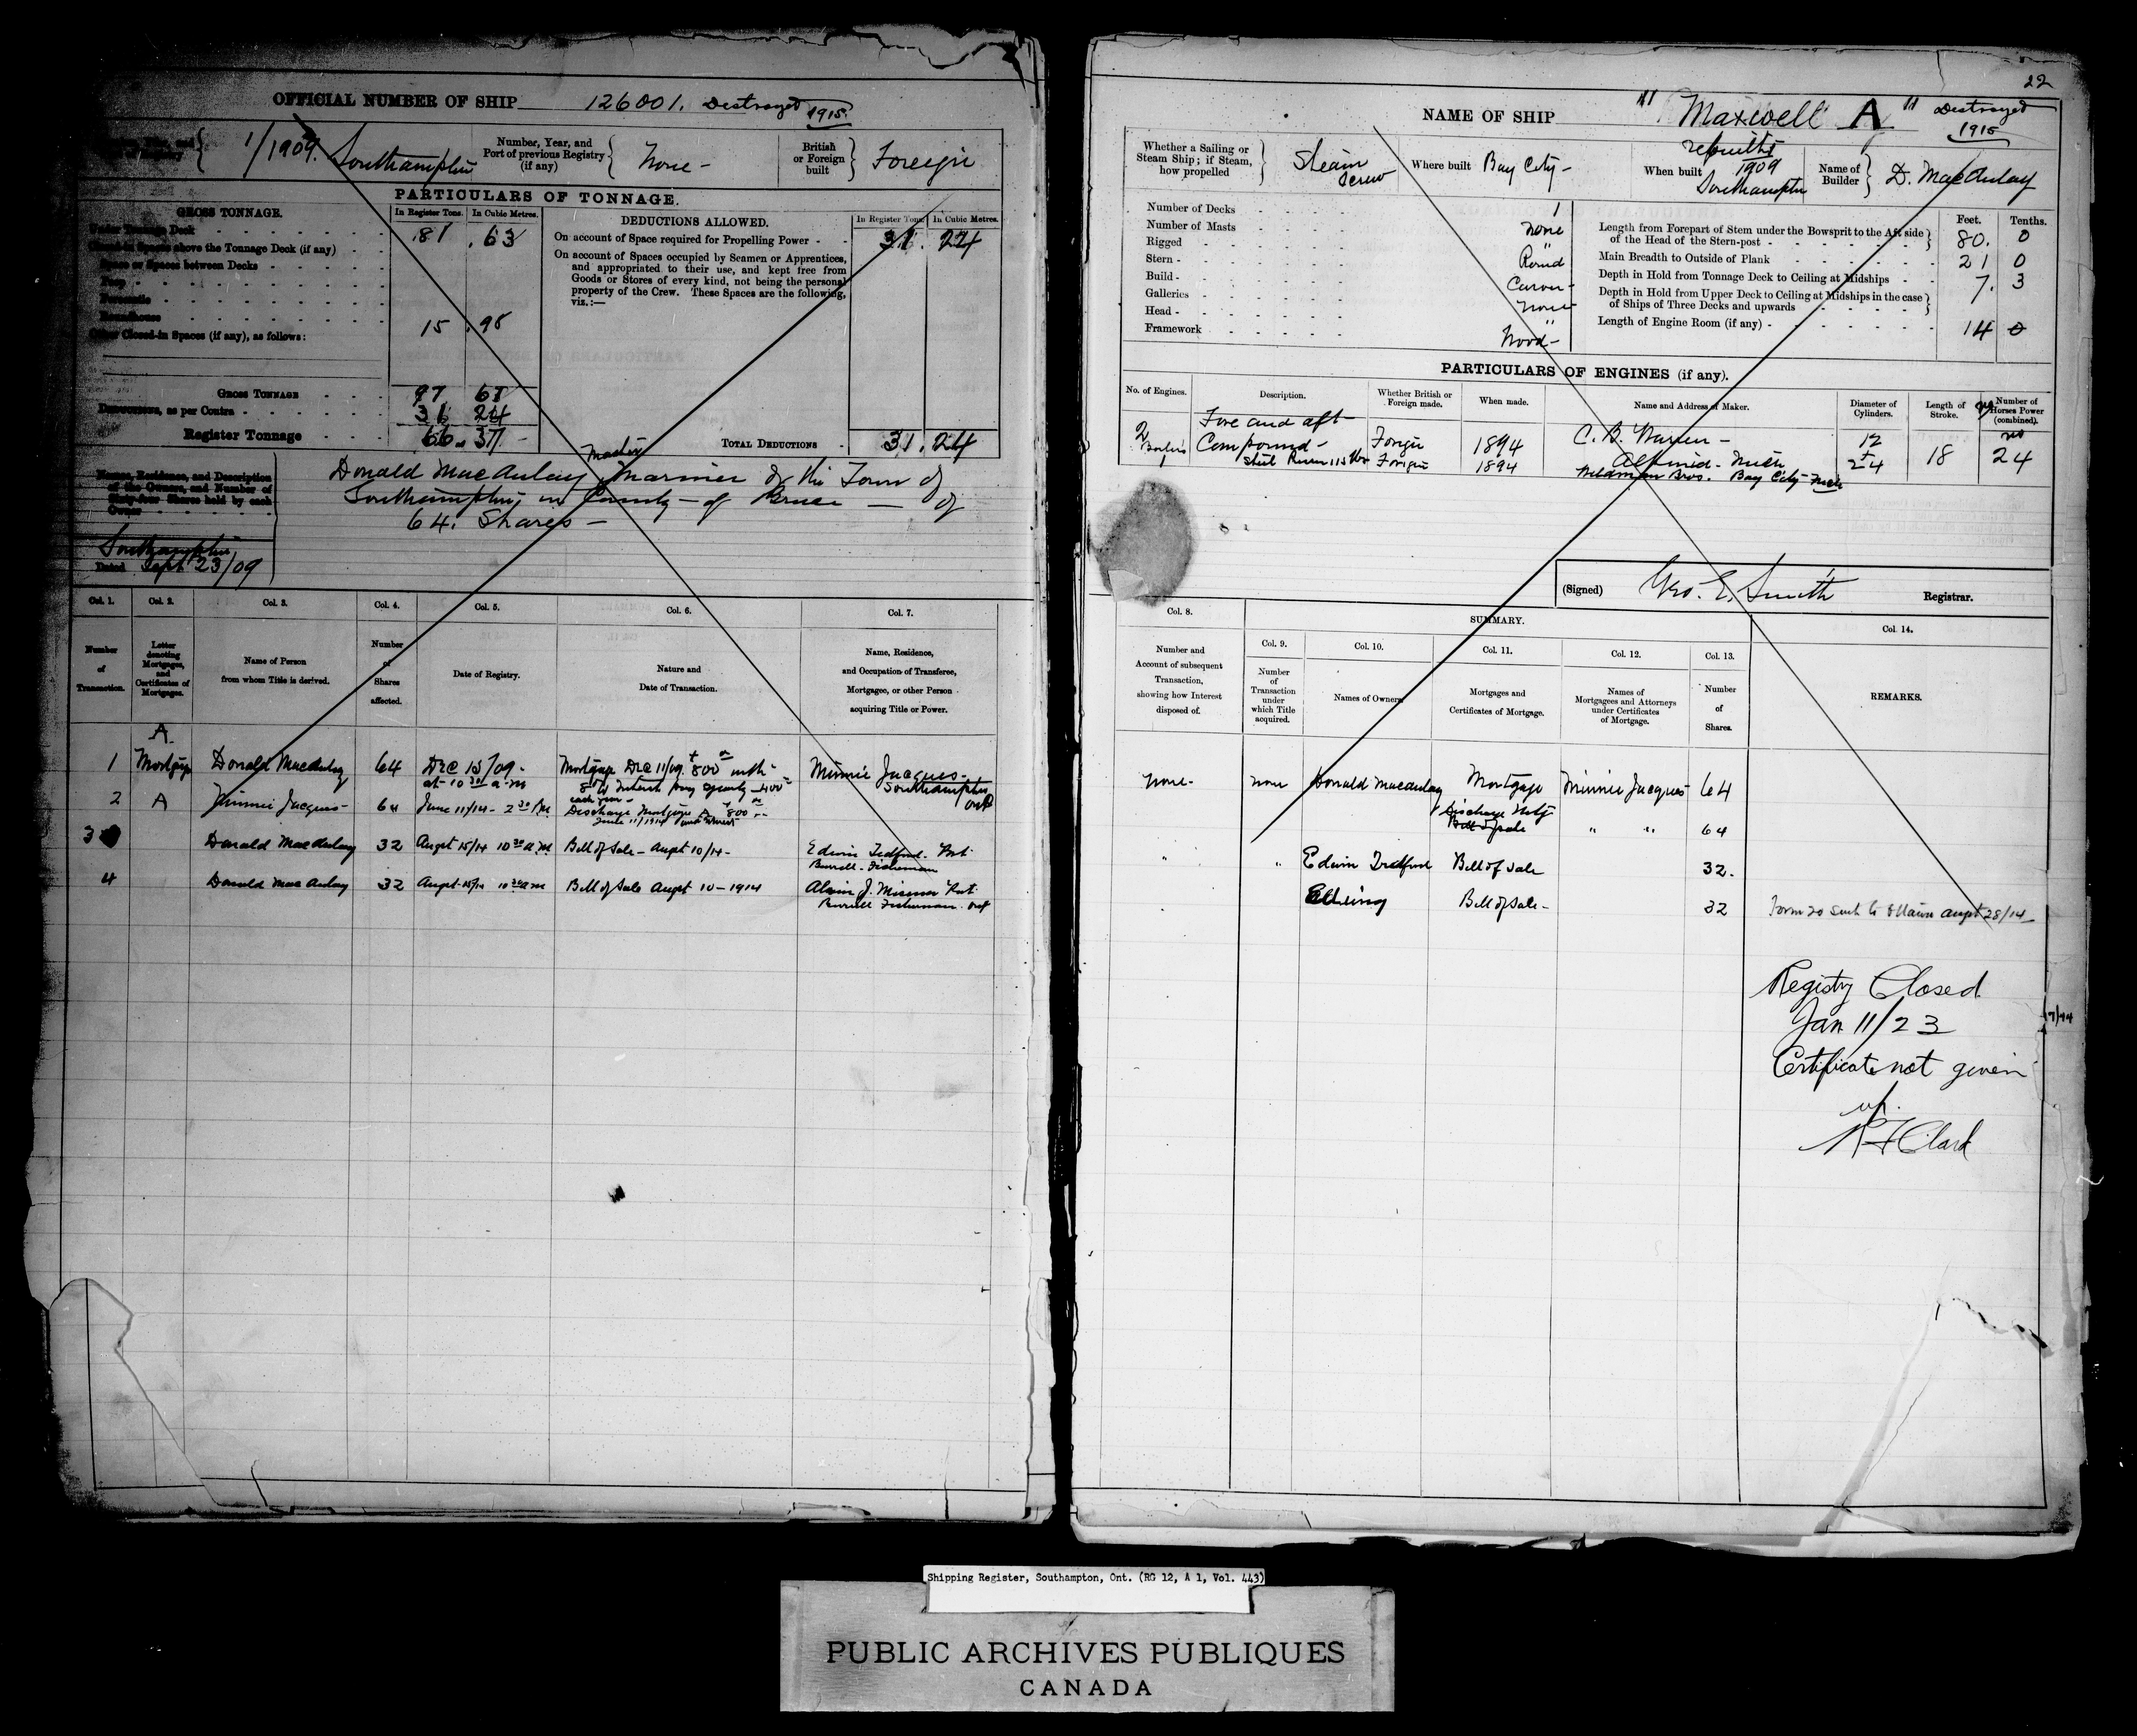 OFFICIAL NUMBER OF SHIP 126001. Destroyed 1915.
1/1909. Southampton
Number, Year, and Port of previous Registry (if any) None -
British or Foreign built Foreign
PARTICULARS OF TONNAGE.
GROSS TONNAGE.
In Register Tons. In Cubic Metres.
Under Tonnage Deck 81 .63
Closed-in Spaces above the Tonnage Deck (if any)
Space or Spaces between Decks
Poop
Roundhouse
Other Closed-in Spaces (if any), as follows: 15 .98
GROSS TONNAGE 97 61
Deductions, as per Contra 31 24
Register Tonnage 66 37 -
DEDUCTIONS ALLOWED.
In Register Tons. In Cubic Metres.
On account of Space required for Propelling Power - 31. 24
On account of Spaces occupied by Seamen or Apprentices,
and appropriated to their use, and kept free from
Goods or Stores of every kind, not being the personal
property of the Crew. These Spaces are the following,
viz.:—
TOTAL DEDUCTIONS 31.24
Names, Residence, and Description
of the Owners, and Number of
Sixty-four Shares held by each
Owner
Master
Donald MacAulay Mariner of the Town of
Southampton in County - of Bruce — of
64. Shares -
Southampton
Dated Sept 23/09
Col. 1. Col. 2. Col. 3. Col. 4. Col. 5. Col. 6. Col. 7.
Number of Transaction.
Letter denoting Mortgages, and Certificates of Mortgages.
Name of Person from whom Title is derived.
Number of Shares affected.
Date of Registry.
Nature and Date of Transaction.
Name, Residence, and Occupation of Transferee, Mortgagee, or other Person acquiring Title or Power.
A
1 Mortgage Donald Macaulay 64 Dec 15/09 - Mortgage Dec 11/09 800 with Minnie Jacques -
at 10 30 a.m Southampton
each year - Ont
2 A Minnie Jacques - 64 June 11/14 - 2 30 P.M. Discharge Mortgage A 800
June 11/1914 and interest
3 Donald MacAulay 32 Augst 15/14 10 30 a.m Bill of Sale - Augst 10/14 - Edwin Tedford. Port
Burwell - Fisherman
4 Donald MacAulay 32 Augst 15/14 10 30 a m Bill of Sale Augst 10 - 1914 Port
Burwell Fisherman. Ont
22
NAME OF SHIP "Maxwell A" Destroyed
1915
Whether a Sailing or Steam Ship; if Steam, how propelled Steam Screw
Where built Bay City -
When built rebuilt 1909 Southampton
Name of Builder D. MacAulay
Number of Decks 1
Number of Masts None
Rigged "
Stern - Round
Build - Carvel -
Galleries None
Head - "
Framework Wood -
Feet. Tenths.
Length from Forepart of Stem under the Bowsprit to the Aft side
of the Head of the Stern-post - 80. 0
Main Breadth to Outside of Plank 21 0
Depth in Hold from Tonnage Deck to Ceiling at Midships 7. 3
Depth in Hold from Upper Deck to Ceiling at Midships in the case
of Ships of Three Decks and upwards
Length of Engine Room (if any) - 14 0
PARTICULARS OF ENGINES (if any).
No. of Engines. Description. Whether British or Foreign made. When made. Name and Address of Maker. Diameter of Cylinders. Length of Stroke. Number of Horses Power (combined).
2 Fore and aft
Compound - Foreign 1894 C. B. Warren - 12 + 24 18 24
Boilers 1 Steel Foreign 1894 Bros. Bay City - Mich
(Signed) Geo. E. Smith Registrar.
SUMMARY.
Col. 8. Col. 9. Col. 10. Col. 11. Col. 12. Col. 13. Col. 14.
Number and Account of subsequent Transaction, showing how Interest disposed of.
Number of Transaction under which Title acquired.
Names of Owners.
Mortgages and Certificates of Mortgage.
Names of Mortgagees and Attorneys under Certificates of Mortgage.
Number of Shares.
REMARKS.
None - none Donald Macaulay Mortgage Minnie Jacques 64
Discharge Mtg
Bill of sale " " 64
" " Edwin Tedford Bill of Sale 32.
Bill of Sale - 32 Form 20 sent to Ottawa Augst 28/14
Registry Closed
Jan 11/23
Certificate not given
up.
Clark
Shipping Register, Southampton, Ont. (RG 12, A 1, Vol. 443)
PUBLIC ARCHIVES PUBLIQUES
CANADA